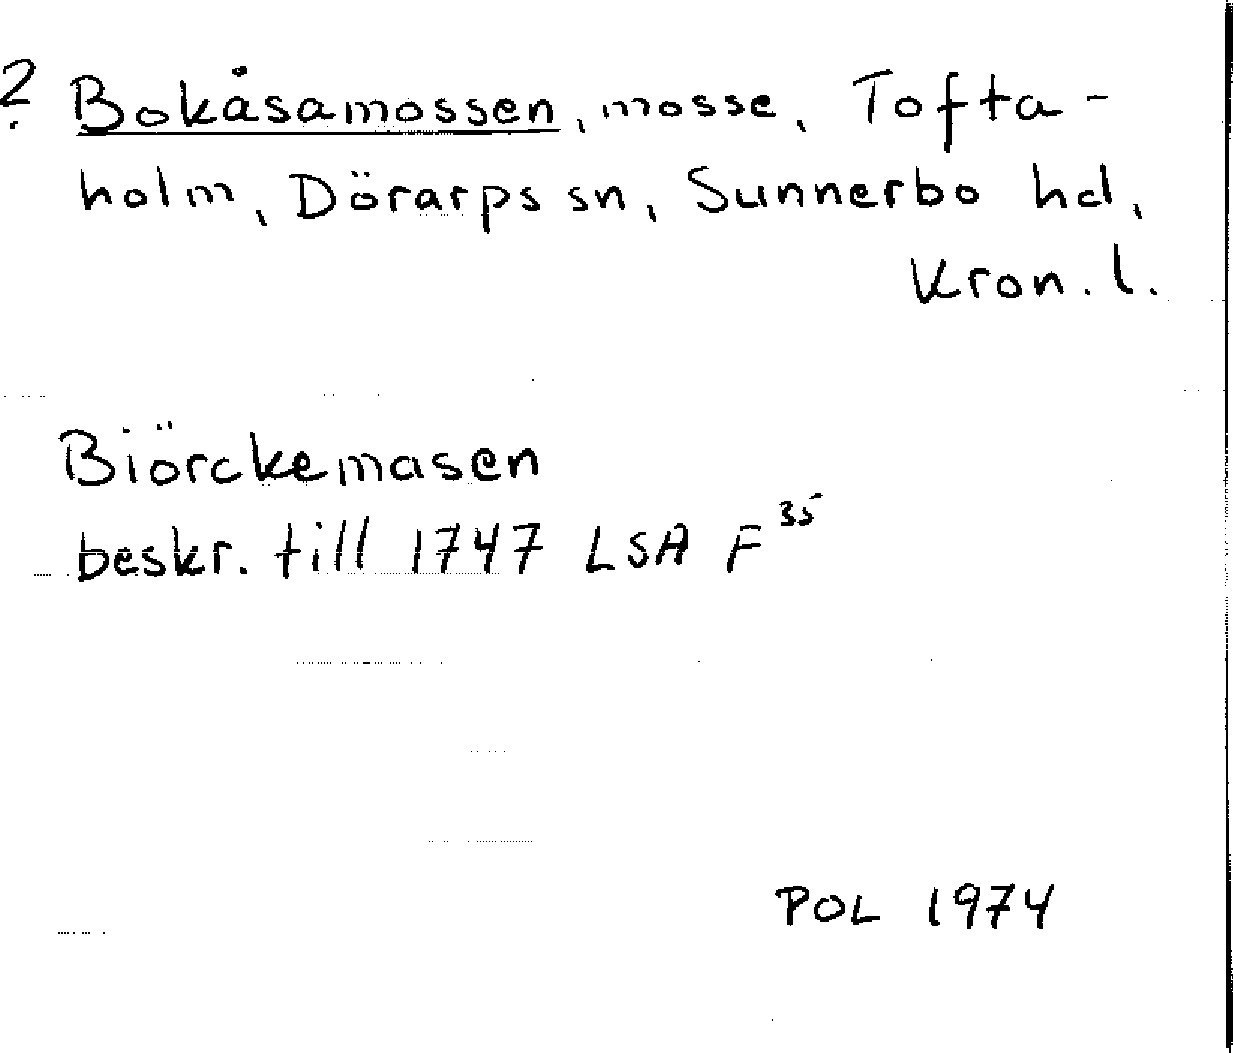 ? Bokåsamossen, mosse, Tofta-
holm, Dörarps sn, Sunnerbo hd,
Kron. l.
Biörckemasen
beskr. till 1747 LSA F 35
POL 1974